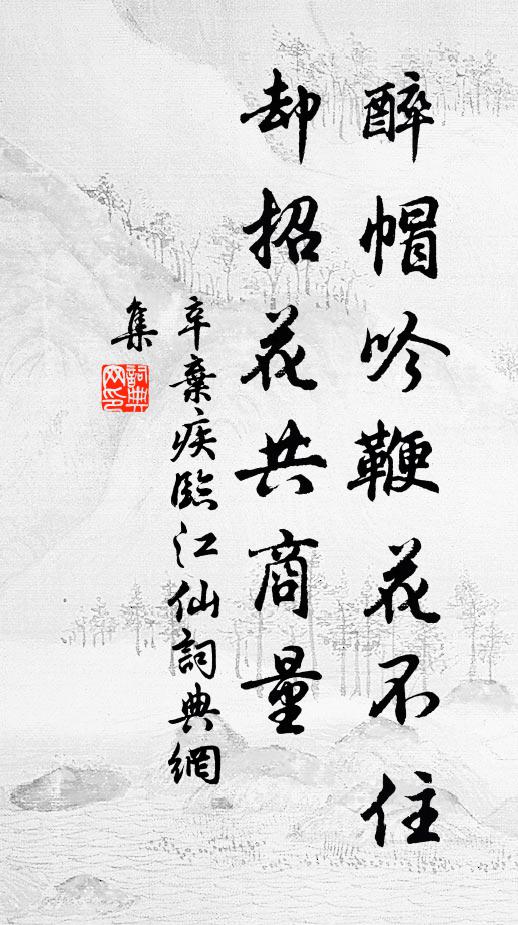 醉帽吟鞭花不住
却招花共商量
辛棄疾臨江仙詞典網
集
詞典网印